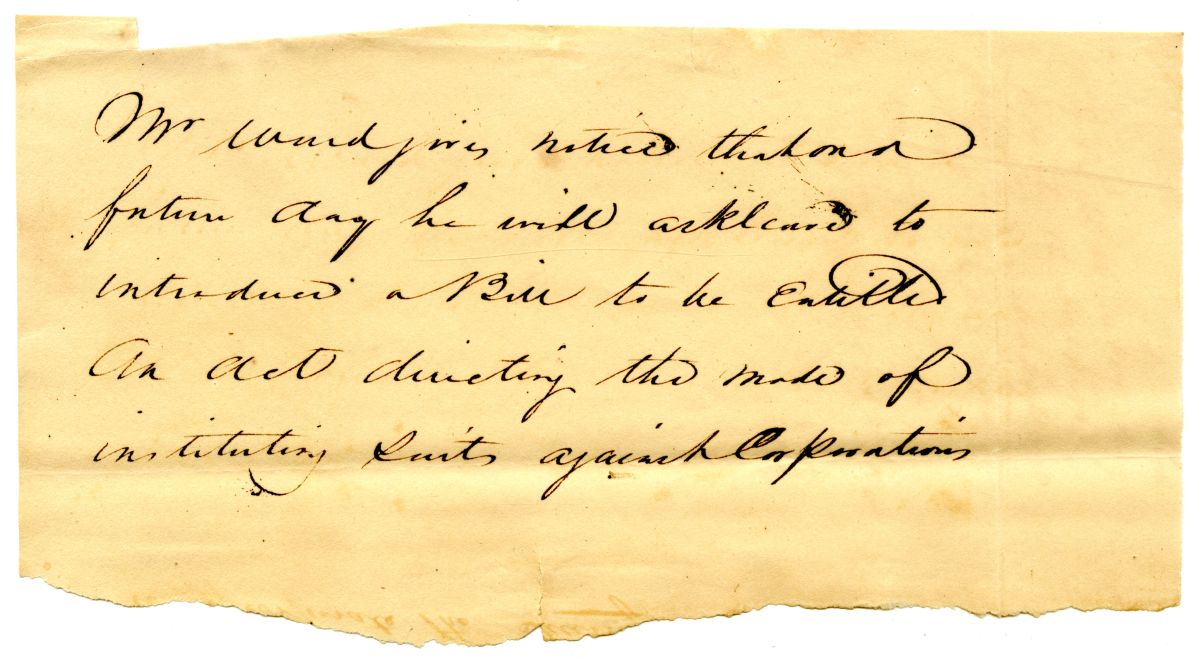 Mr Ward gives notice that on a
future day he will ask leave to
introduce a Bill to be Entitled
An act directing the mode of
instituting suits against Corporations